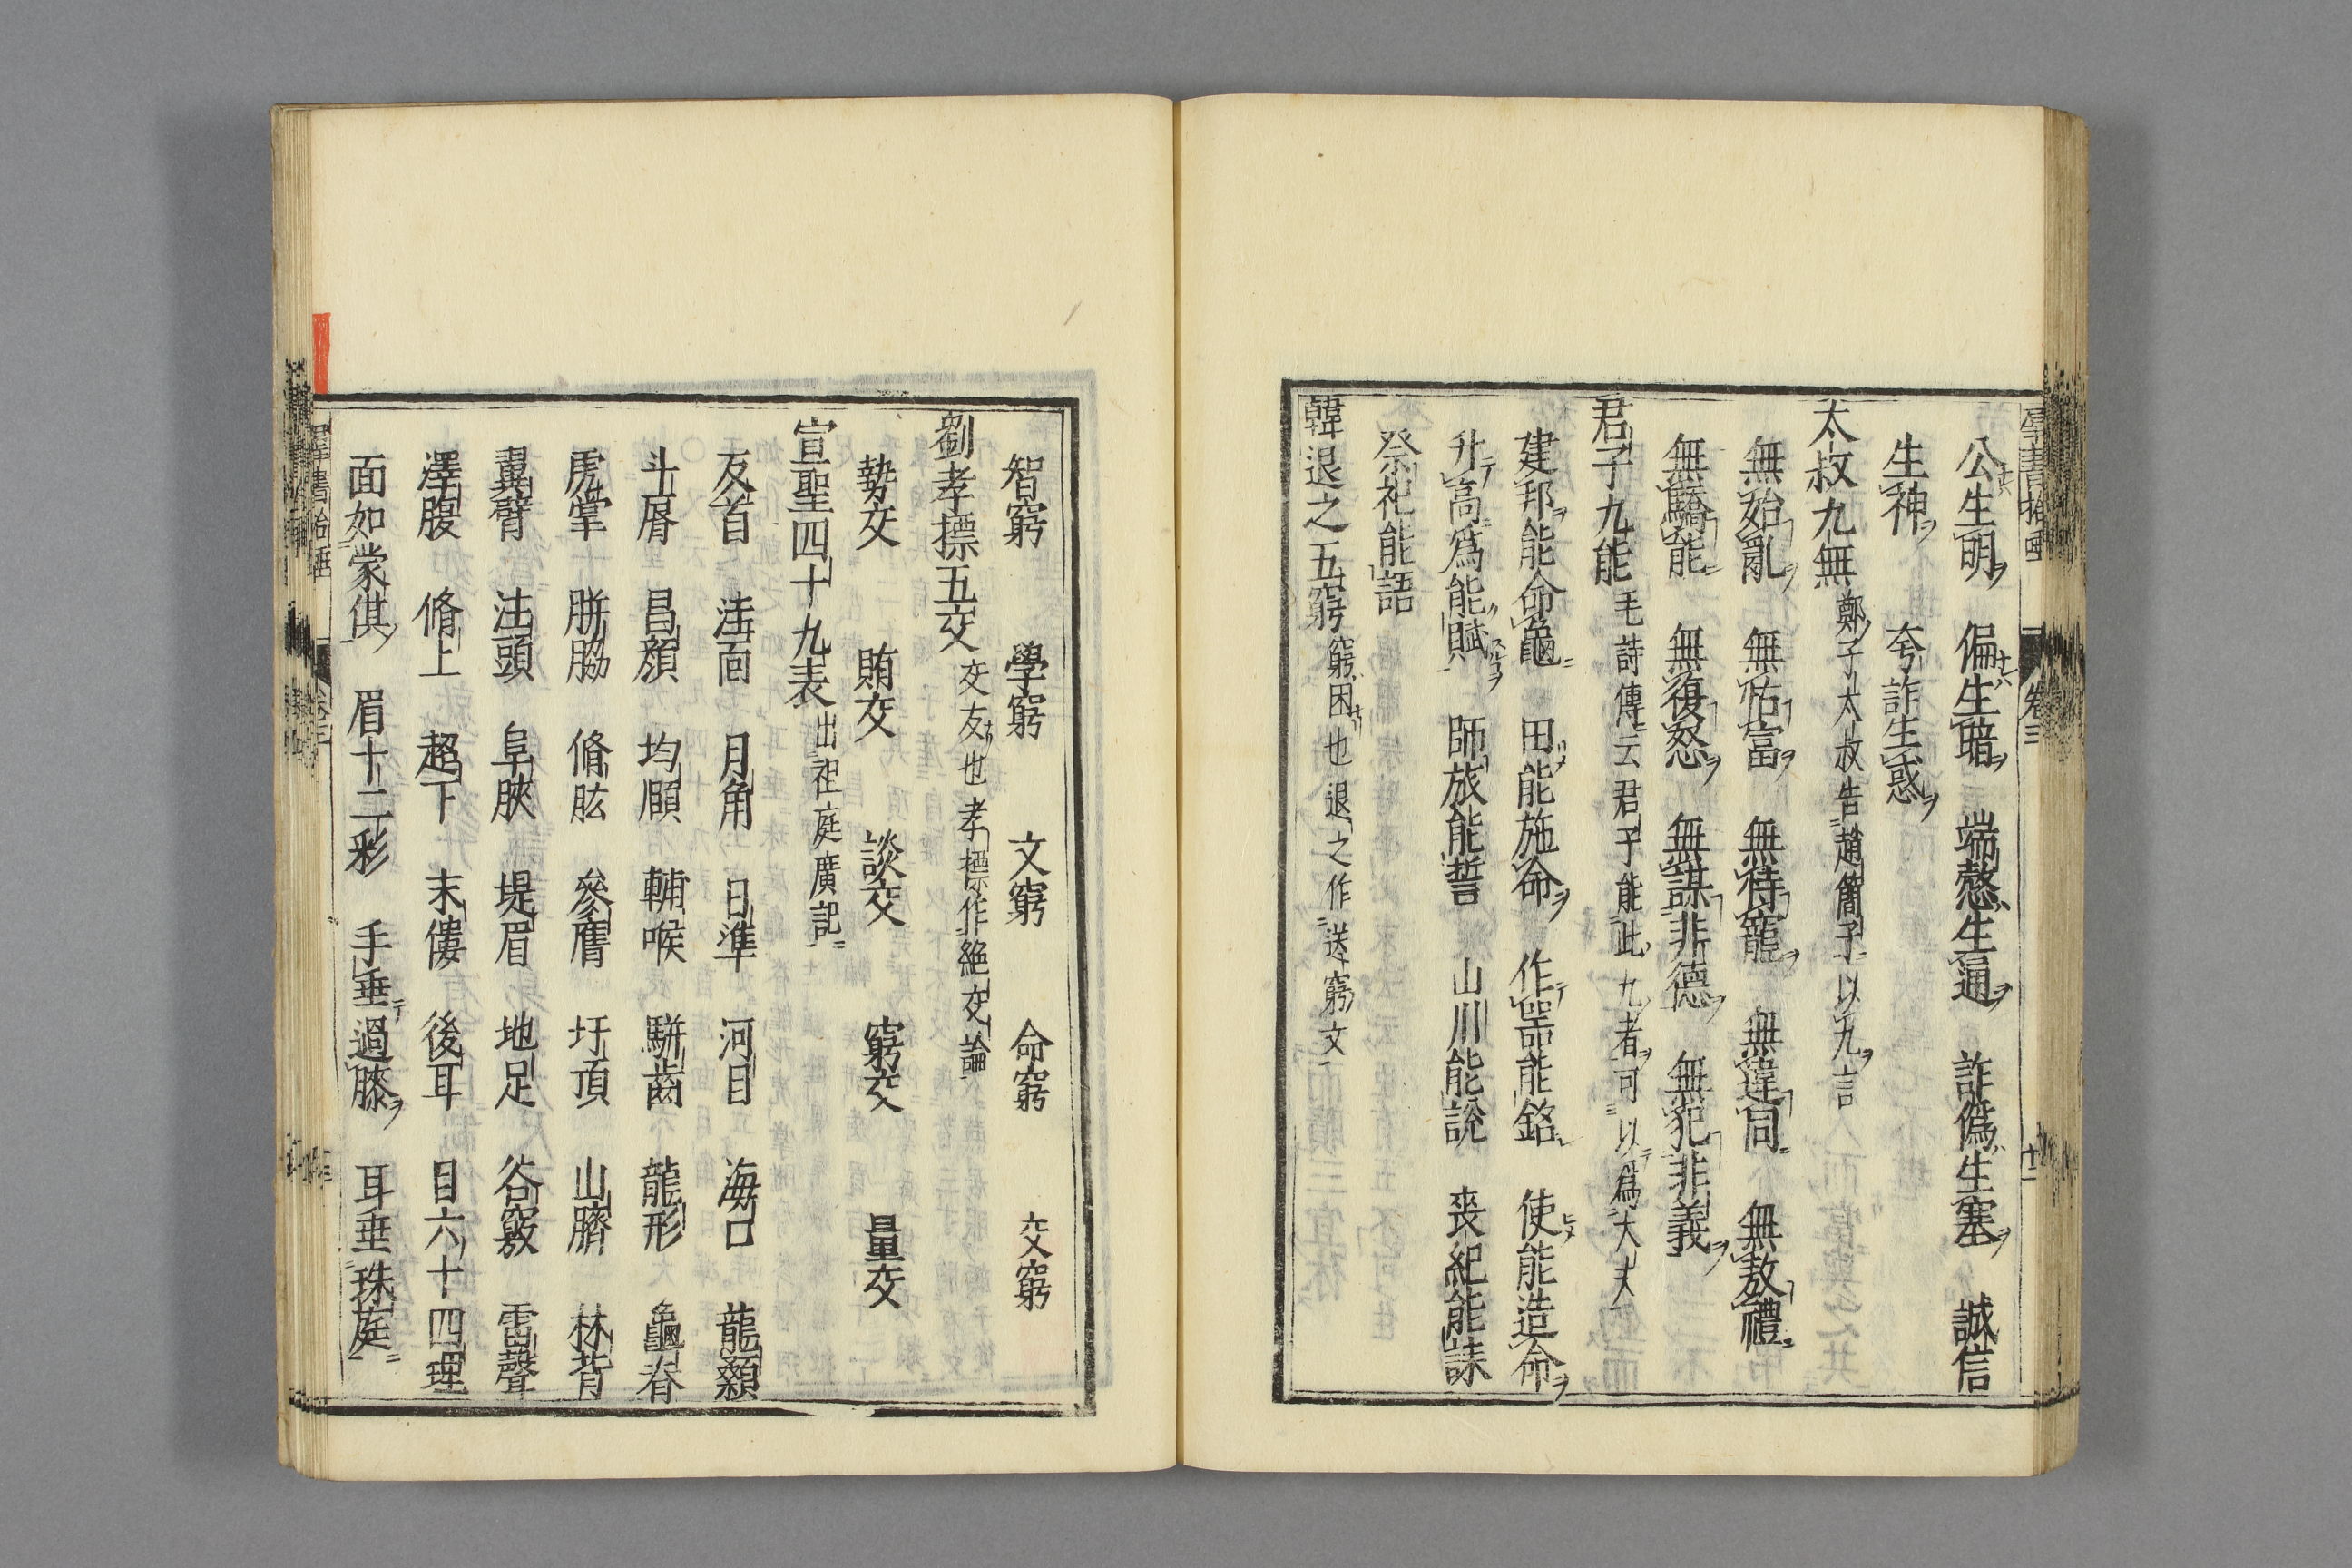 公生明 偏生暗 端慤生通 詐僞生塞 誠信
生神 夸詐生惑
太叔九無 鄭子太叔告趙簡子以九言
無始亂 無怙富 無恃寵 無違同 無敖禮
無驕能 無復怒 無謀非德 無犯非義
君子九能 毛詩傳云君子能此九者可以爲大夫
建邦能命龜 田能施命 作器能銘 使能造命
升高爲能賦 師旅能誓 山川能說 喪紀能誄
祭祀能語
韓退之五窮 窮困也退之作送窮文
智窮 學窮 文窮 命窮 交窮
劉孝標五交 交友也孝標作絶交論
勢交 賄交 談交 窮交 量交
宣聖四十九表 出祖庭廣記
反首 洼面 月角 日準 河目 海口 龍顙
斗脣 昌顏 均頤 輔喉 駢齒 龍形 龜脊
虎掌 胼脇 脩肱 參膺 圩頂 山臍 林背
翼臂 注頭 阜脥 堤眉 地足 谷竅 雷聲
澤腹 脩上 趨下 末僂 後耳 目六十四理
面如蒙倛 眉十二彩 手垂過膝 耳垂珠庭
卷三
十二